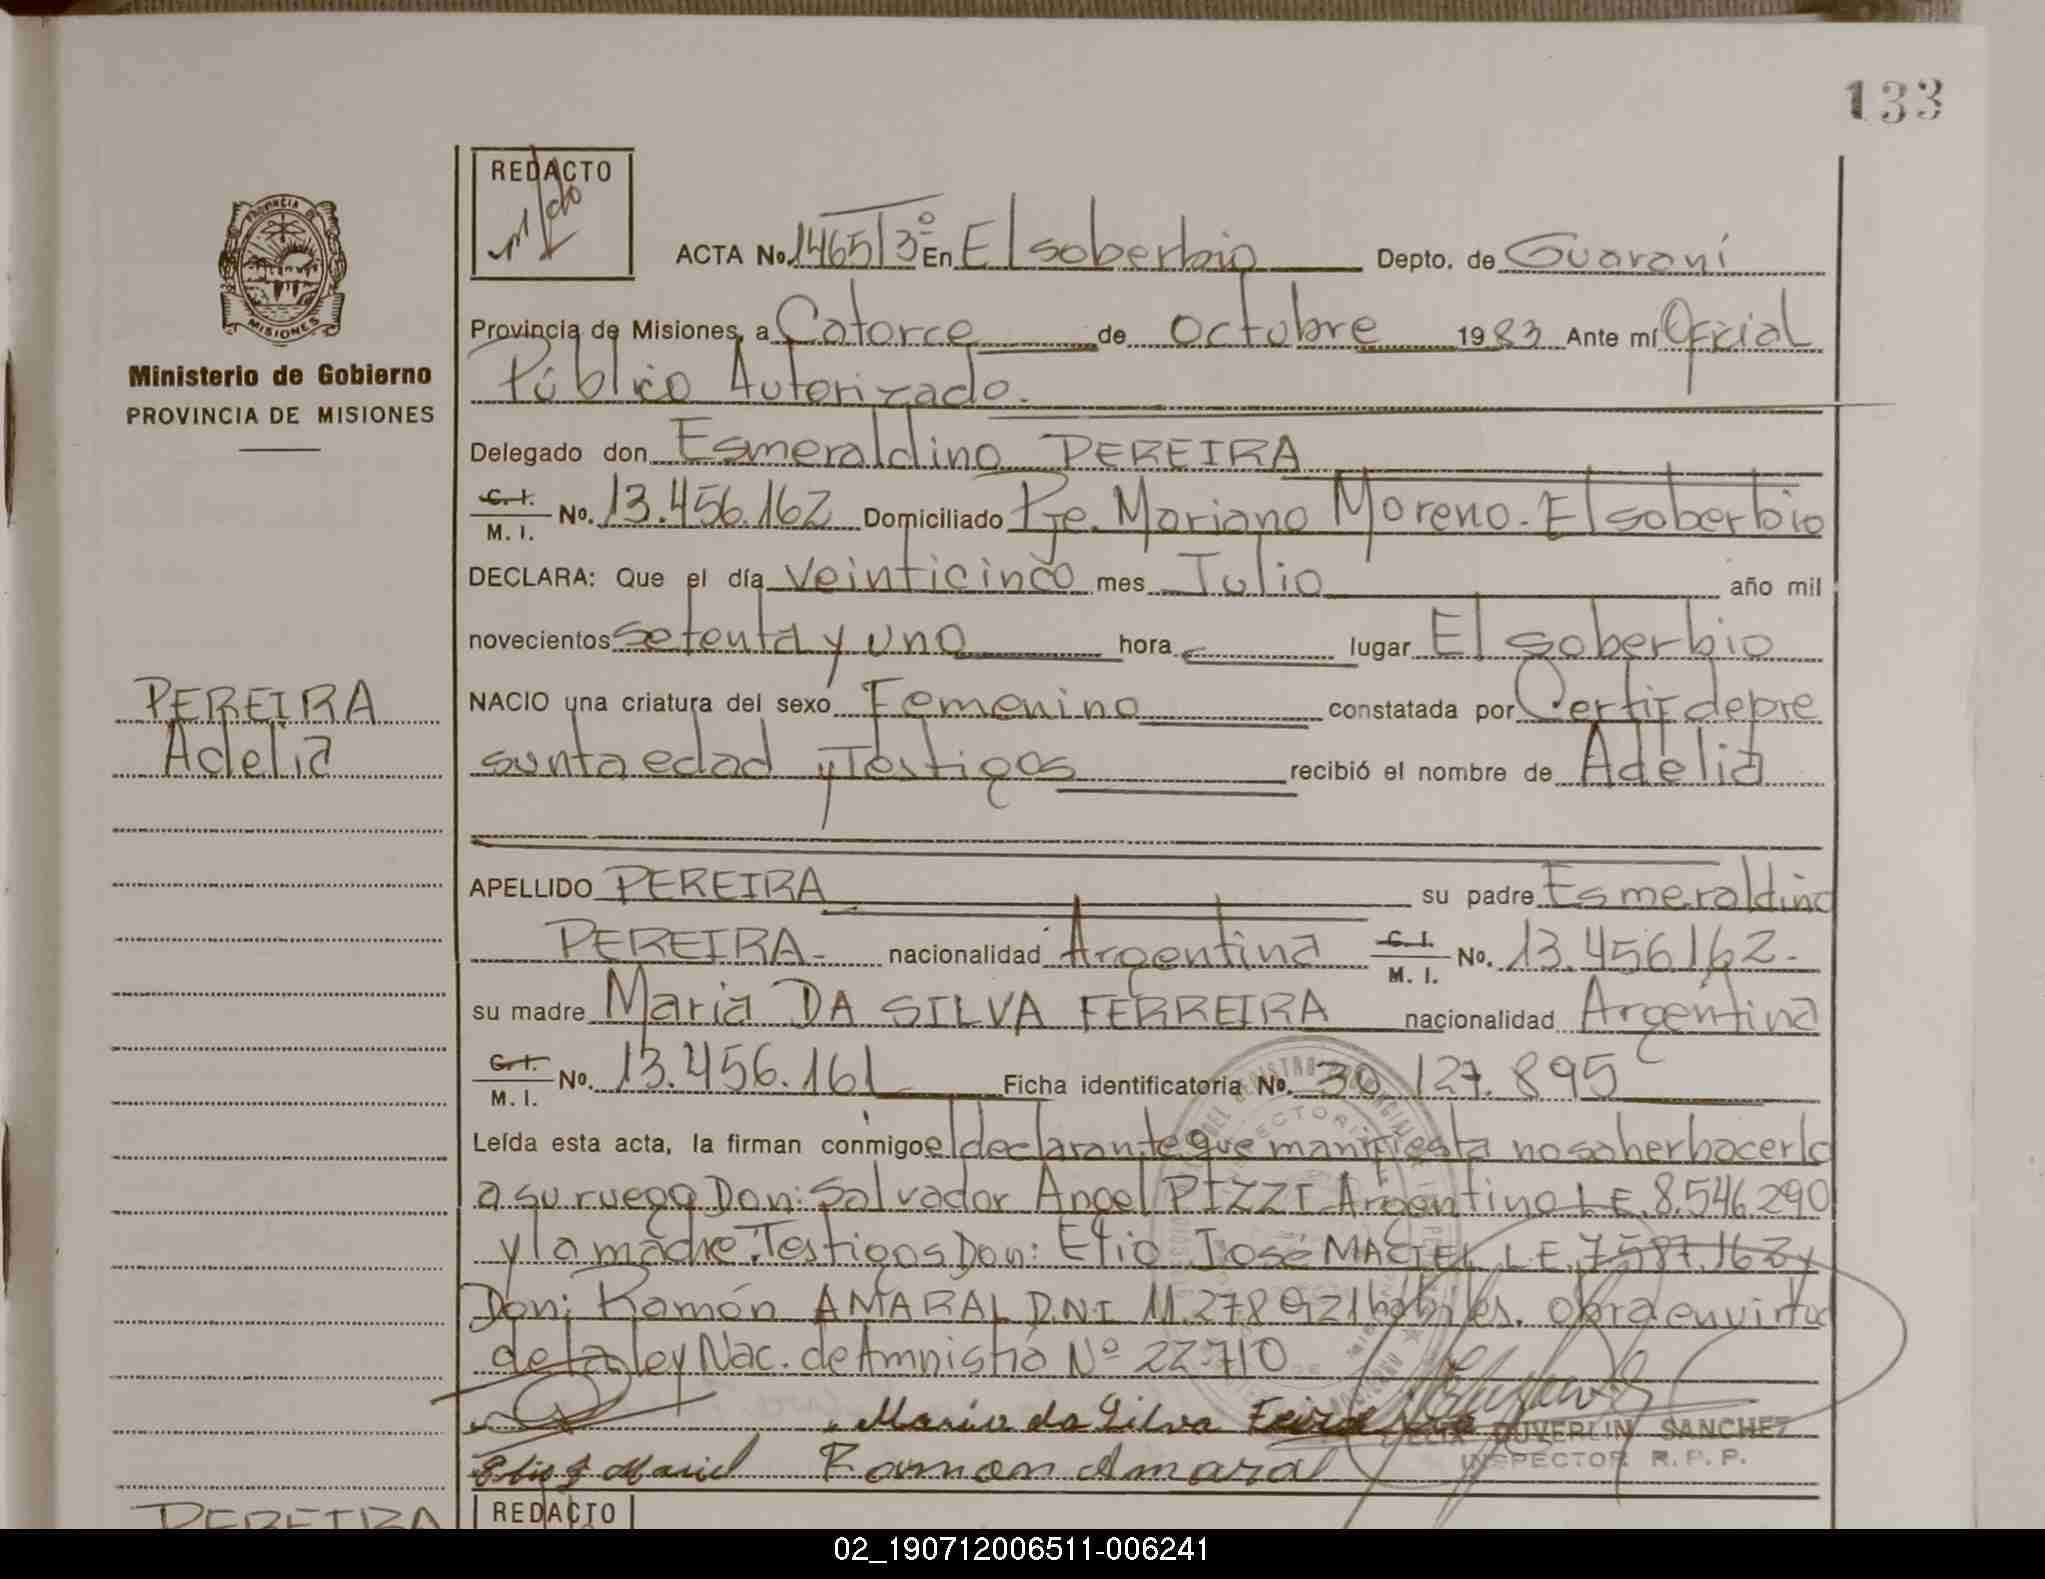 133
REDACTO
ACTA No. 1465 T 3º En El soberbio Depto. de Guaraní
PROVINCIA DE MISIONES
Provincia de Misiones, a Catorce de octubre 1983 Ante mí Oficial
Ministerio de Gobierno
PROVINCIA DE MISIONES
Público Autorizado.
Delegado don Esmeraldino PEREIRA
C. I. M. I. No. 13.456.162 Domiciliado Pje. Mariano Moreno. El soberbio
DECLARA: Que el día veinticinco mes Julio año mil
novecientos setenta y uno hora lugar El soberbio
PEREIRA
Adelia
NACIO una criatura del sexo Femenino constatada por Certif de pre
sunta edad y Testigos recibió el nombre de Adelia
APELLIDO PEREIRA su padre Esmeraldino
PEREIRA nacionalidad Argentina C. I. M. I. No. 13.456.162.
su madre Maria DA SILVA FERREIRA nacionalidad Argentina
C. I. M. I. No. 13.456.161 Ficha identificatoria No. 30.127.895
Leída esta acta, la firman conmigo el declarante que manifiesta no saber hacerlo
a su ruego Don: Salvador Angel PIZZI Argentino L.E. 8.546.290
y la madre. Testigos Don: Elio José MACIEL L.E. 7.587.162 y
Don: Ramón AMARAL D.N.I 11.278.921 habiles. obra en virtud
de la ley Nac. de Amnistia Nº 22710
Maria da Silva
Ramon Amaral
FELIX DUVERLIN SANCHEZ
INSPECTOR R. P. P.
PEREIRA
REDACTO
02_190712006511-006241